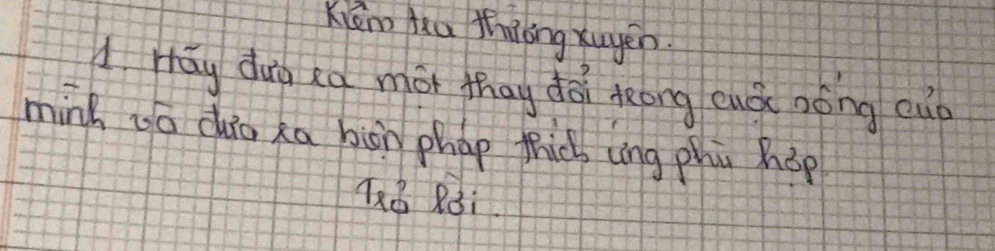 Kiểm tra thường xuyên.
1. Hãy đưa ra một thay đổi trong cuộc sống của
mình và đưa ra biện pháp thích ứng phù hợp
Trả lời.